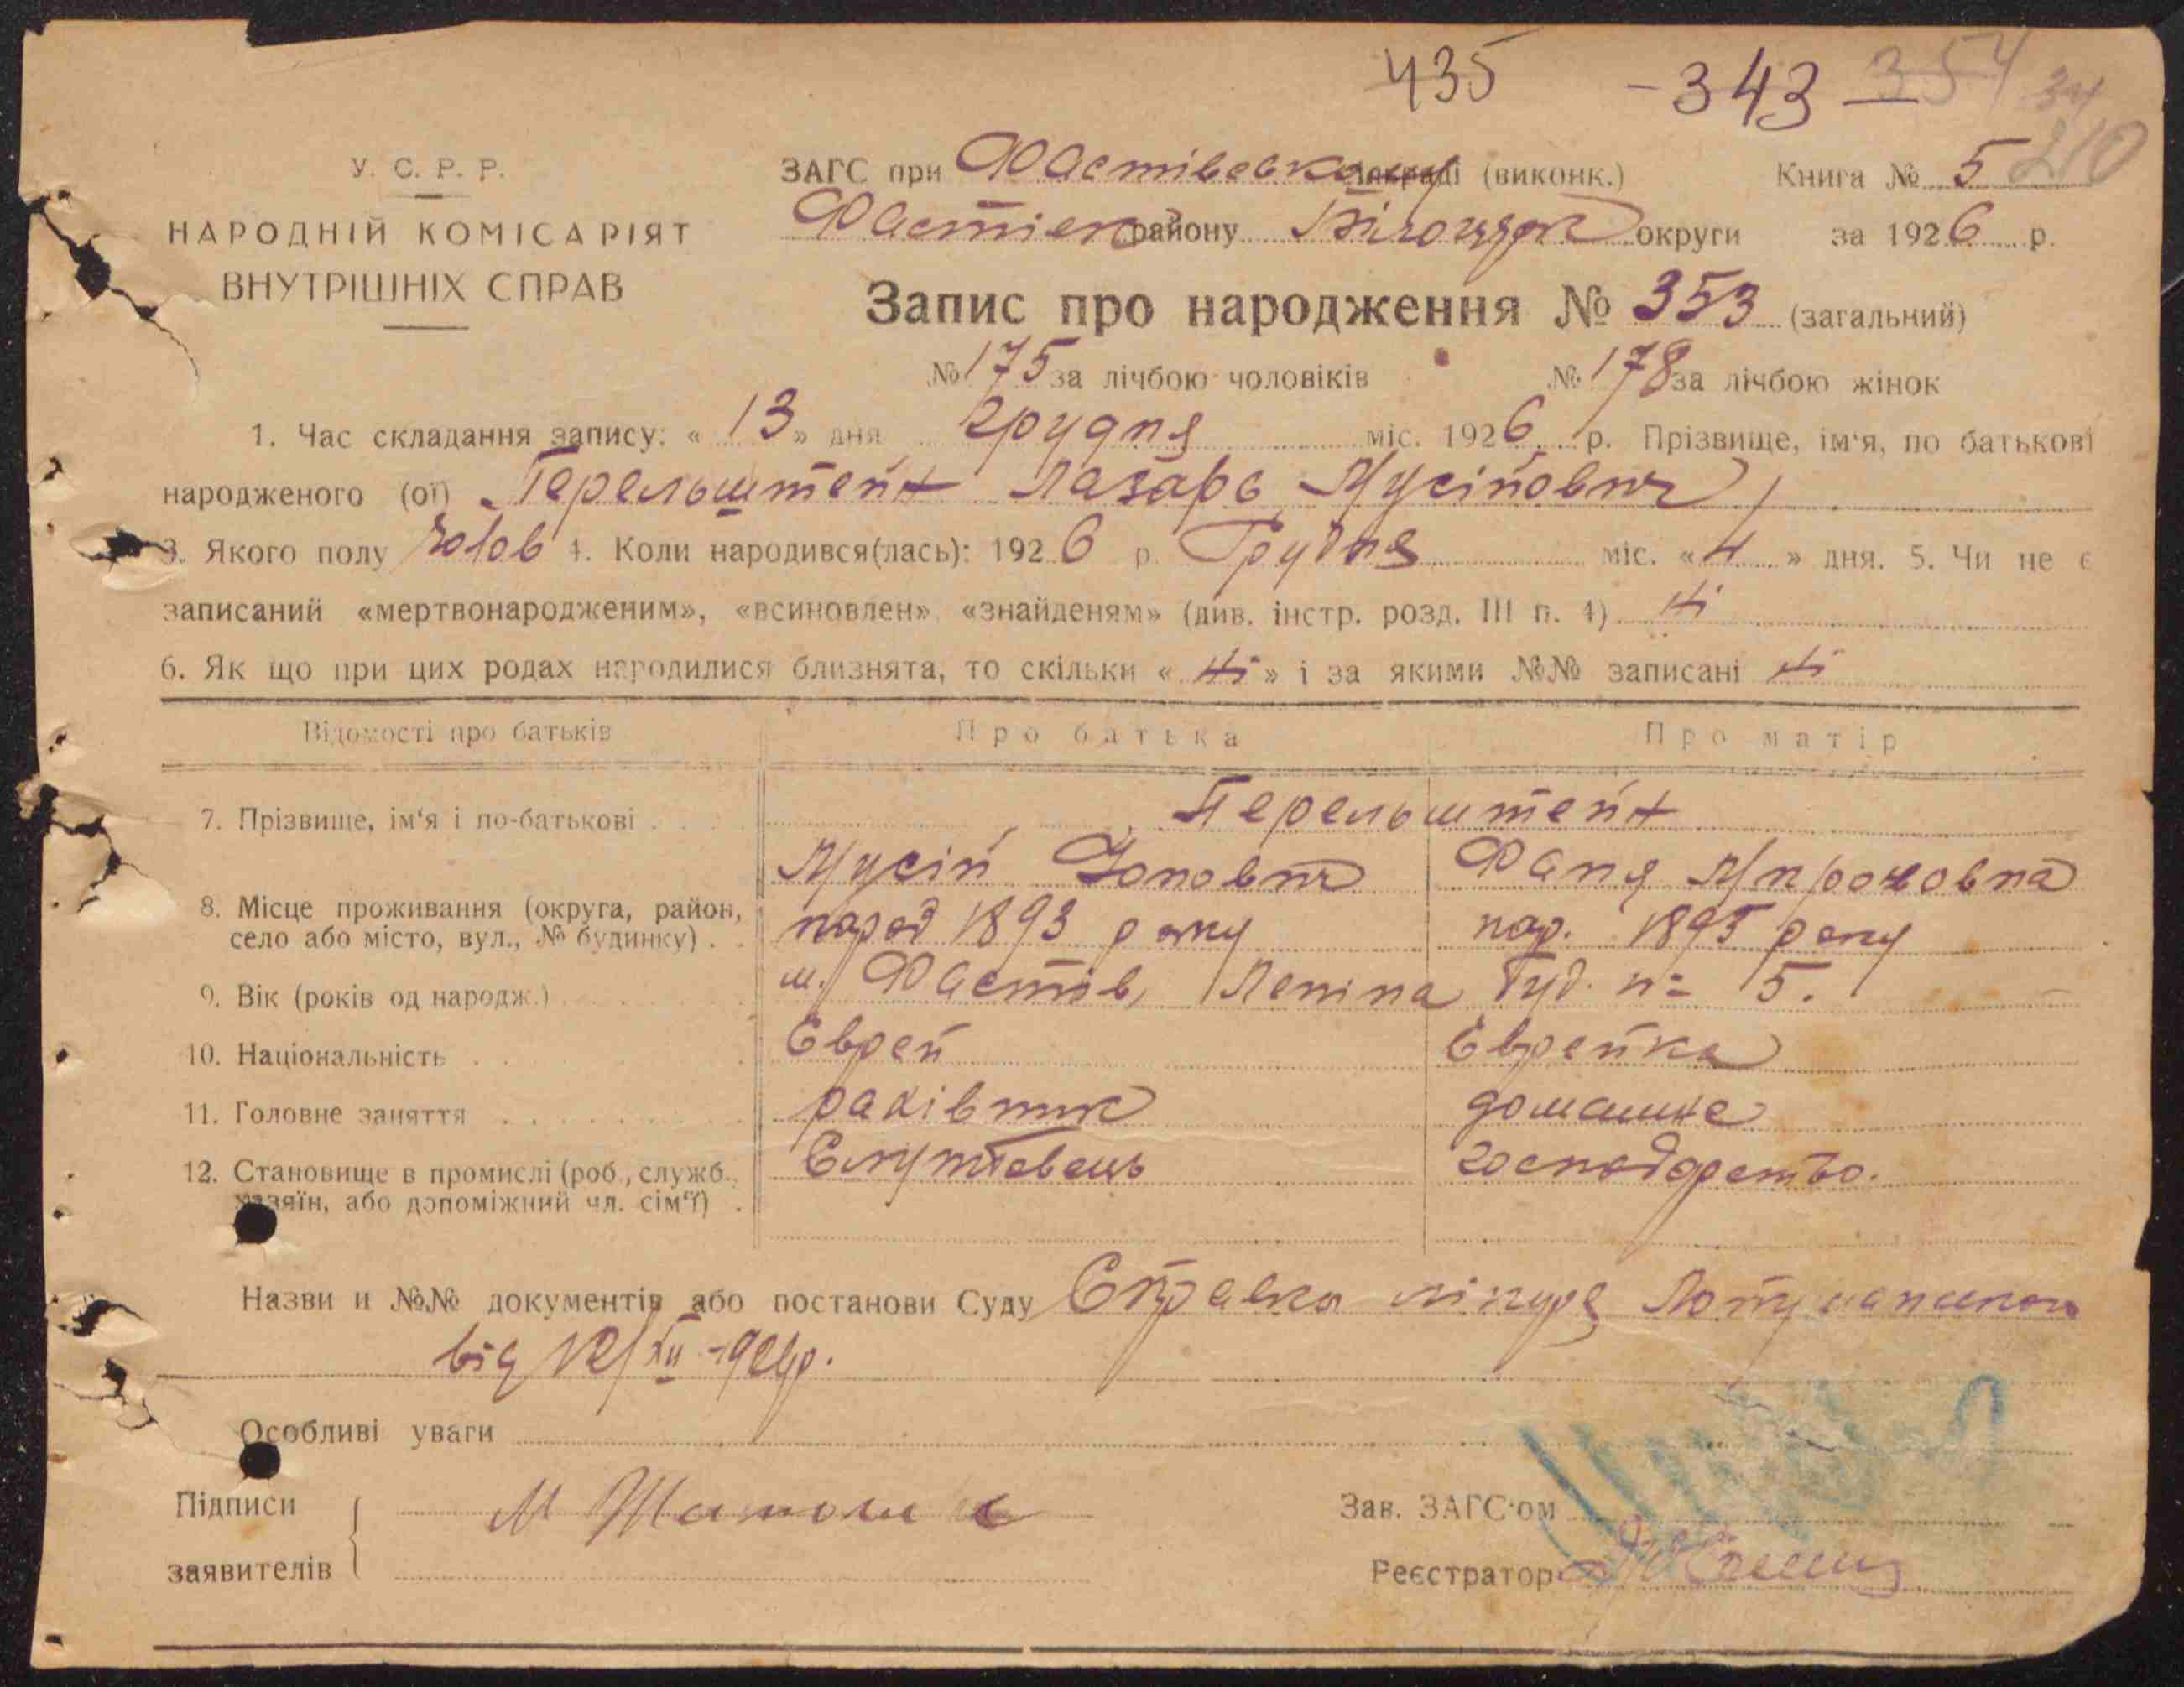 435 - 343 354 34
У. С. Р. Р.
НАРОДНІЙ КОМІСАРІЯТ
ВНУТРІШНІХ СПРАВ
ЗАГС при Фастівському (виконк.) Книга № 5 210
Фастівськ району Білоцерк округи за 1926 р.
Запис про народження № 353 (загальний)
№ 175 за лічбою чоловіків № 178 за лічбою жінок
1. Час складання запису: « 13 » дня грудня міс. 1926 р. Прізвище, ім'я, по батькові
народженого (ої) Перельштейн Лазарь Мусійович
3. Якого полу чолов 4. Коли народився(лась): 1926 р. Грудня міс. « 4 » дня. 5. Чи не є
записаний «мертвонародженим», «всиновлен», «знайденям» (див. інстр. розд. III п. 4) Ні
6. Як що при цих родах народилися близнята, то скільки « Ні » і за якими №№ записані Ні
Відомості про батьків Про батька Про матір
7. Прізвище, ім'я і по-батькові Перельштейн
Мусій Фаня
8. Місце проживання (округа, район,
село або місто, вул., № будинку) народ 1893 року нар. 1895 року
9. Вік (років од народж.) м. Фастів, Леніна буд. № 5.
10. Національність Єврей Єврейка
11. Головне заняття рахівник домашнє
12. Становище в промислі (роб., служб.,
хазяїн, або допоміжний чл. сім'ї) господарство.
Назви и №№ документів або постанови Суду Справка лікуря
від 12/XII
Особливі уваги
Підписи
заявителів
Зав. ЗАГС'ом
Реєстратор